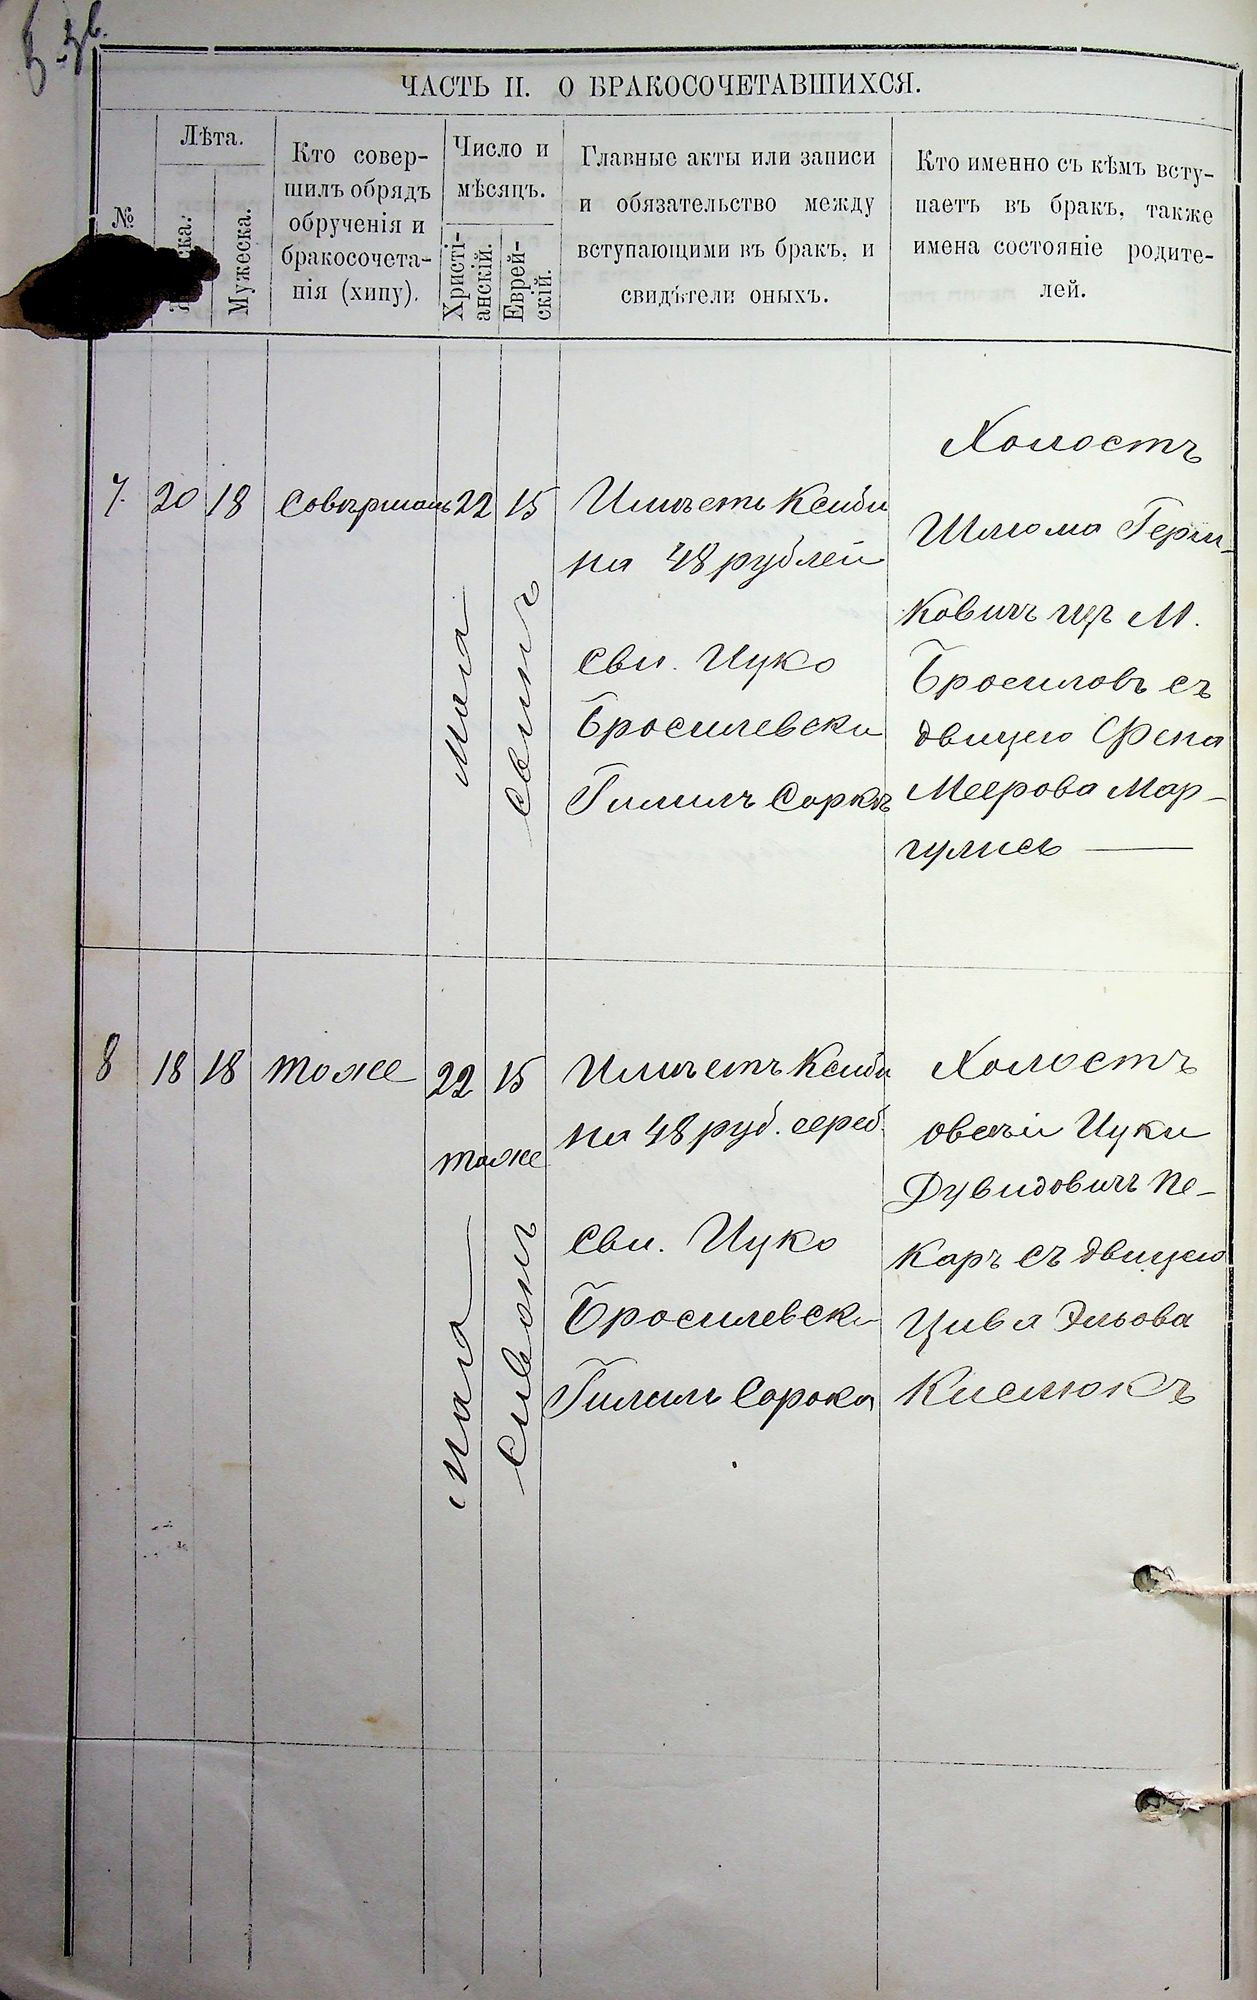 ЧАСТЬ II. О БРАКОСОЧЕТАВШИХСЯ.
№
Лѣта.
Мужеска.
Кто совер-
шилъ обрядъ
обрученія и
бракосочета-
нія (хипу).
Число и
мѣсяцъ.
Христі-
анскій.
Еврей-
скій.
Главные акты или записи
и обязательство между
вступающими въ бракъ, и
свидѣтели оныхъ.
Кто именно съ кѣмъ всту-
паетъ въ бракъ, также
имена состояніе родите-
лей.
7. 20 18
22 15
Мая
на 48 рублей
Сви. Ицко
Бросилевски
Холостъ
Шлиома Герш-
ковичъ изъ М.
Бросиловъ съ
двицею
Меерова Мар-
гулисъ
8 18 18 тоже 22 15
тоже
Мая
Сивонъ
Имѣетъ Ксиби
на 48 руб. сереб.
Сви. Ицко
Бросилевски
Сорока
Холостъ
Ицки
Дувидовичъ Пе-
каръ съ двицею
Цивя Эльова
Кислюкъ